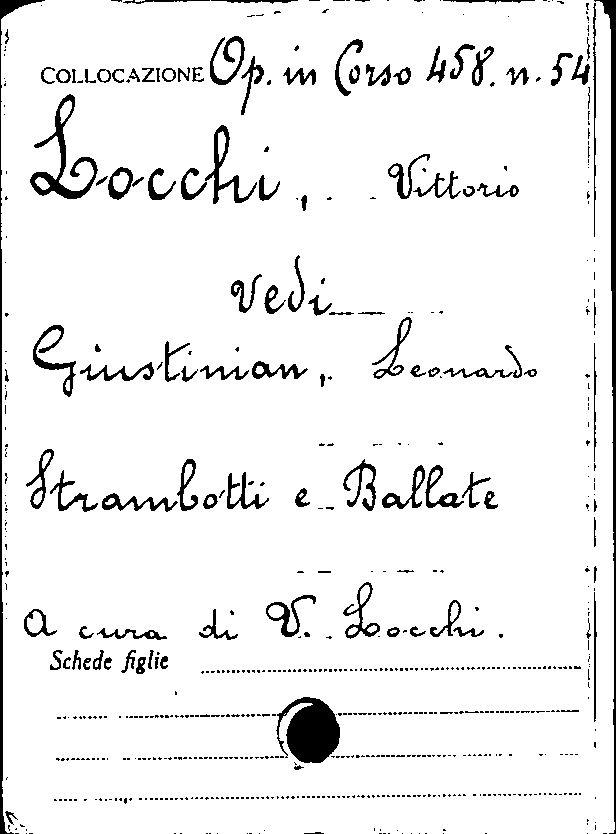 COLLOCAZIONE Op. in Corso 458. n. 54
Locchi, Vittorio
Vedi
Giustinian, Leonardo
Strambotti e Ballate
A cura di V. Locchi.
Schede figlie